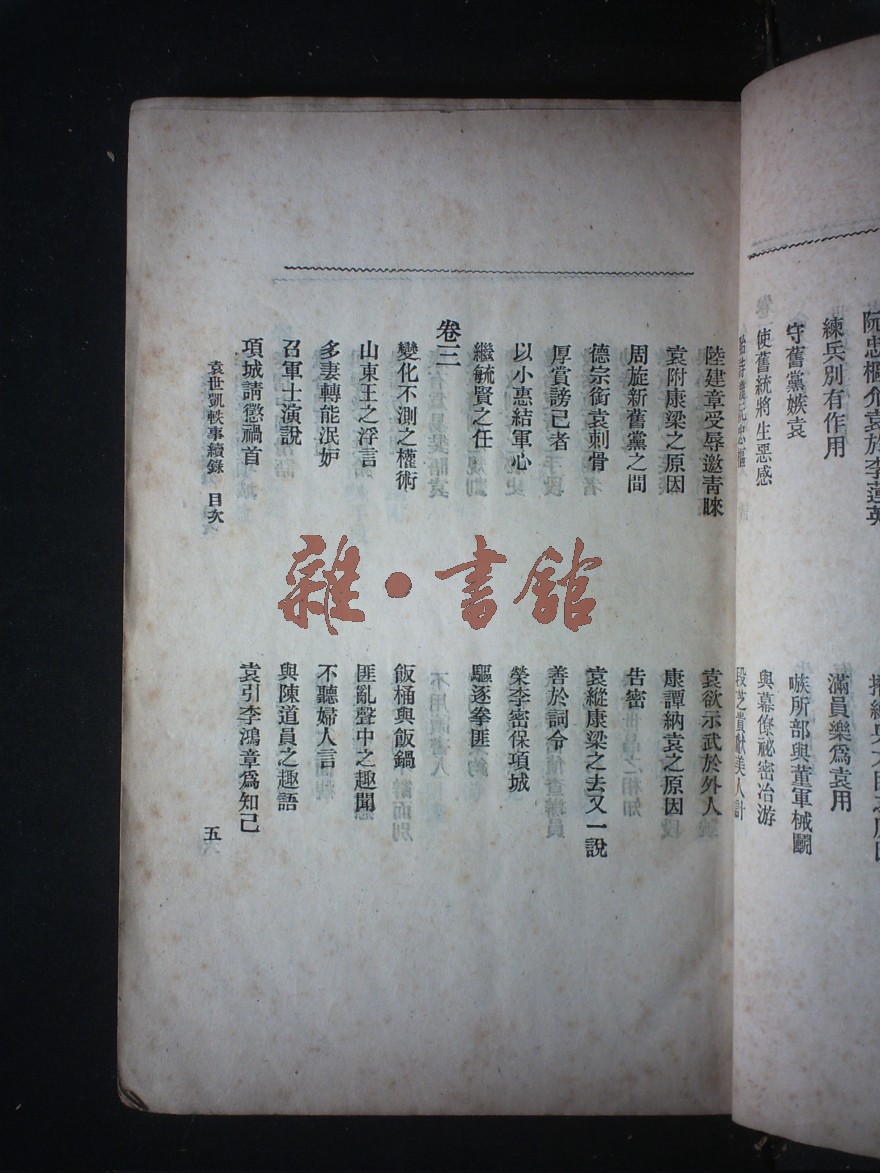 練兵別有作用
滿員樂爲袁用
守舊黨嫉袁
嗾所部與董軍械鬭
使舊統將生惡感
與幕僚祕密冶游
段芝貴獻美人計
陸建章受辱邀靑睞
袁欲示武於外人
袁附康梁之原因
康譚納袁之原因
周旋新舊黨之間
告密
德宗銜袁刺骨
袁縱康梁之去又一說
厚賞謗己者
善於詞令
以小惠結軍心
榮李密保項城
繼毓賢之任
驅逐拳匪
卷三
變化不測之權術
飯桶與飯鍋
山東王之浮言
匪亂聲中之趣聞
多妻轉能泯妒
不聽婦人言
召軍士演說
與陳道員之趣語
項城請懲禍首
袁引李鴻章爲知己
袁世凱軼事續錄 目次
五
雜·書館